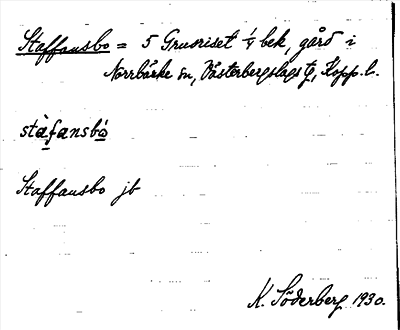 Staffansbo = 5 Grusriset 1/4 bek, gård i
Norrbärke sn, Västerbergslags tg, Kopp. l.
stàfansbò
Staffansbo jb
K. Söderberg 1930.